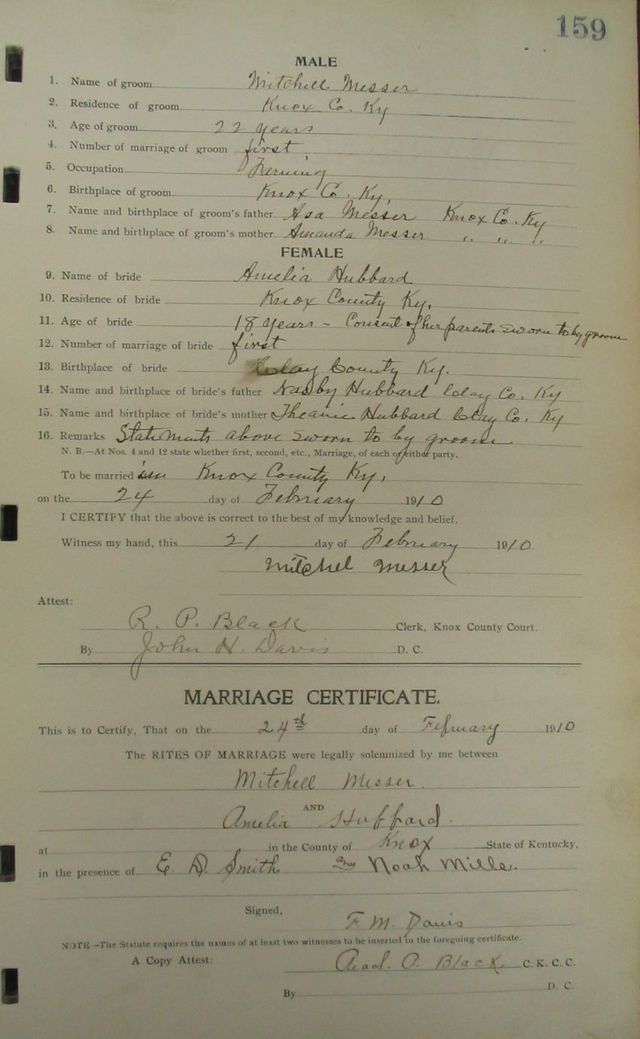 159
MALE
1. Name of groom Mitchell Messer
2. Residence of groom Knox Co. Ky
3. Age of groom 22 years
4. Number of marriage of groom first
5. Occupation Farming
6. Birthplace of groom Knox Co. Ky.
7. Name and birthplace of groom's father Asa Messer Knox Co. Ky
8. Name and birthplace of groom's mother Amanda Messer " " "
FEMALE
9. Name of bride Amelia Hubbard
10. Residence of bride Knox County Ky.
11. Age of bride 18 years - Consent of her parents sworn to by groom
12. Number of marriage of bride first
13. Birthplace of bride Clay County Ky.
14. Name and birthplace of bride's father Nasby Hubbard Clay Co. Ky
15. Name and birthplace of bride's mother Hubbard Clay Co. Ky
16. Remarks Statements above sworn to by groom
N. B.—At Nos. 4 and 12 state whether first, second, etc., Marriage, of each or either party.
To be married in Knox County Ky.
on the 24 day of February 1910
I CERTIFY that the above is correct to the best of my knowledge and belief.
Witness my hand, this 21 day of February 1910
Mitchel Messer
Attest:
R. P. Black Clerk, Knox County Court.
By John H. Davis D. C.
MARRIAGE CERTIFICATE.
This is to Certify, That on the 24th day of February 1910
The RITES OF MARRIAGE were legally solemnized by me between
Mitchell Messer.
AND
Amelia Hubbard.
at in the County of Knox State of Kentucky,
in the presence of E. D. Smith and Noah Mills.
Signed,
F. M. Davis
NOTE—The Statute requires the names of at least two witnesses to be inserted in the foregoing certificate.
A Copy Attest: Read. P. Black C. K. C. C.
By D. C.